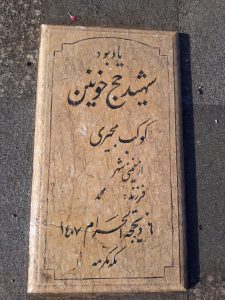 یادبود
شهید حج خونین
کوکب مجیری
از خمینی شهر
فرزند: محمد
۶ ذیحجة الحرام ۱۴۰۷
مکه مکرمه